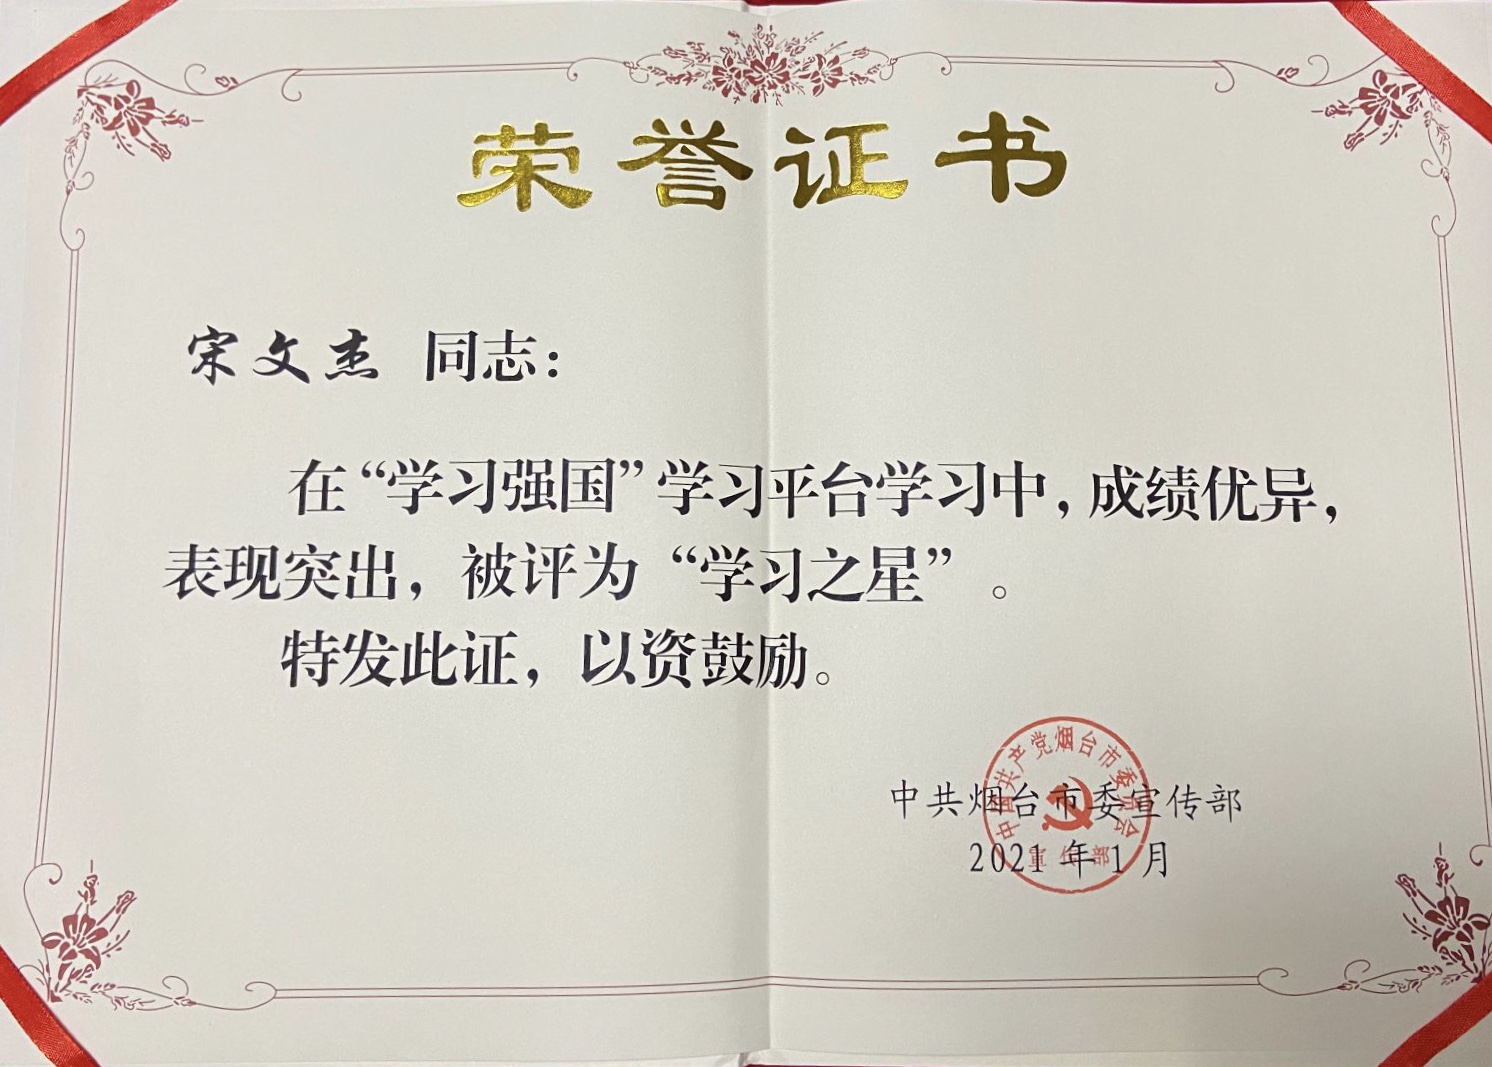 荣誉证书
宋文杰 同志：
在“学习强国”学习平台学习中，成绩优异，
表现突出，被评为“学习之星”。
特发此证，以资鼓励。
中共烟台市委宣传部
2021年1月
中国共产党烟台市委员会
宣传部